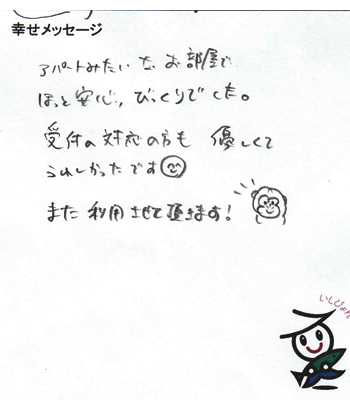 幸せメッセージ
アパートみたいな、お部屋で
ほっと安心、びっくりでした。
受付の対応の方も 優しくて
うれしかったです
また利用させて頂きます!
いしじょん